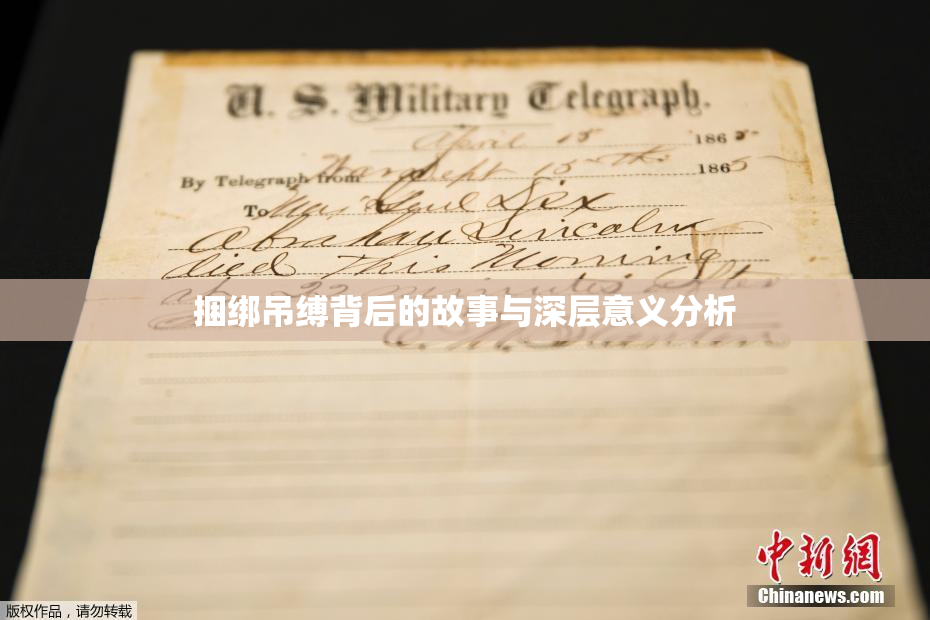 U. S. Military Telegraph.
April 15 1865
By Telegraph from War Dept 15th 1865
To Maj Genl Dix
Abraham Lincoln
died This Morning
at 22 minutes after
捆绑吊缚背后的故事与深层意义分析
E. M. Stanton
中新网
Chinanews.com
版权作品,请勿转载